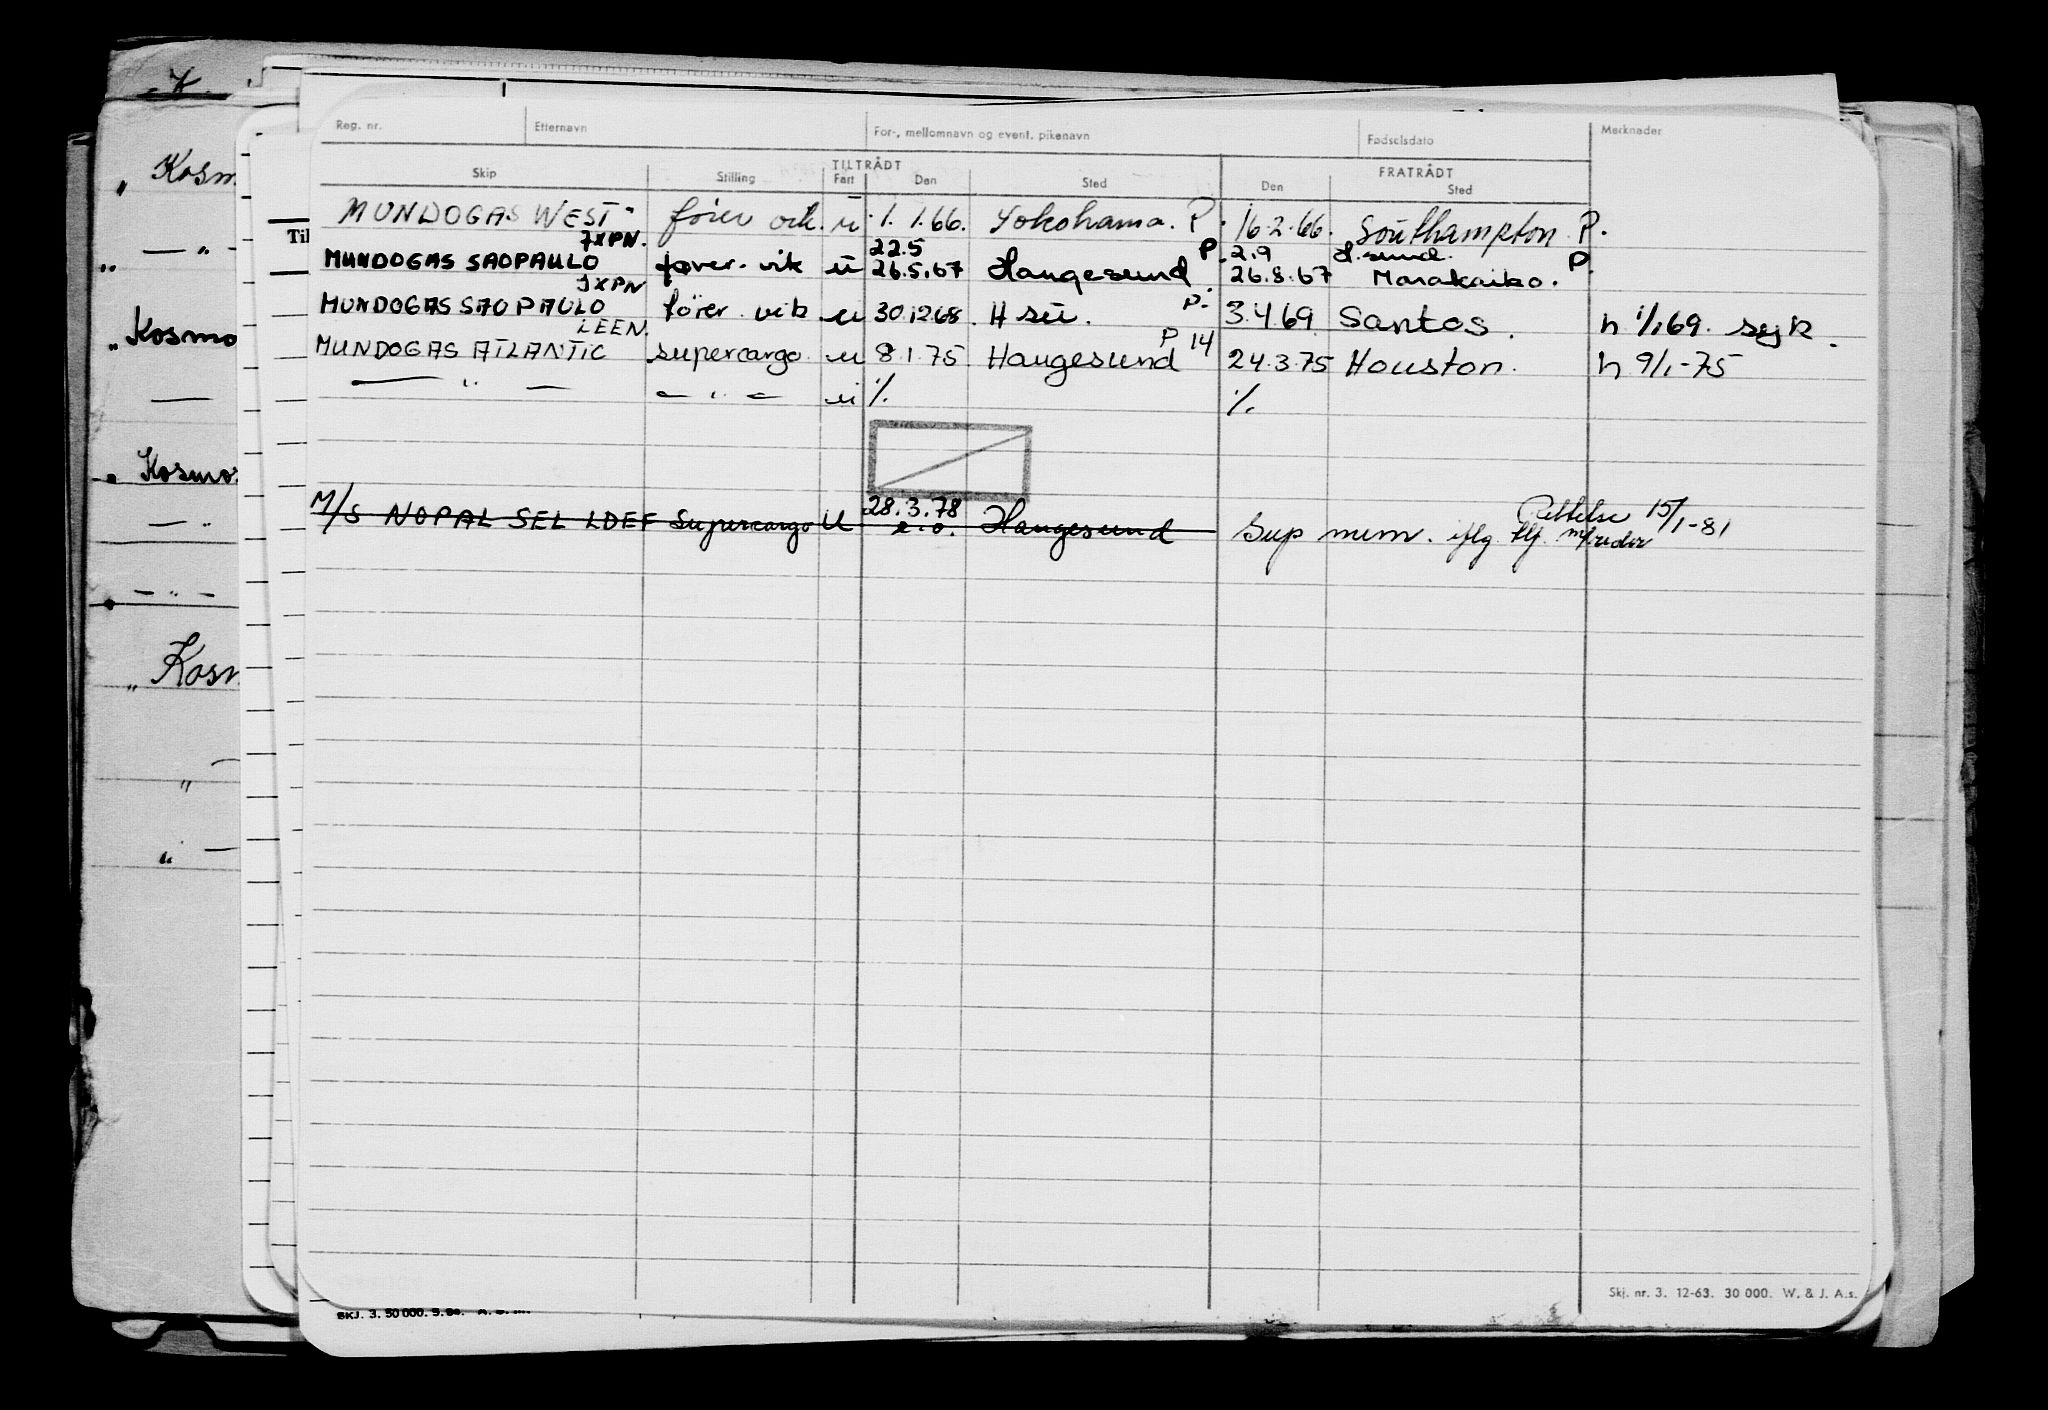 Reg. nr. Etternavn For-, mellomnavn og event. pikenavn Fødselsdato Merknader
TILTRÅDT FRATRÅDT
Skip Stilling Fart Den Sted Den Sted
MUNDOGAS WEST" fører vik. u 1.1.66. Yokohama. P. 16.2.66. Southampton P.
JXPN. 22.5 P. 2.9 H.sund. P.
MUNDOGAS SAOPAULO fører vik u 26.5.67 Haugesund 26.8.67 Marakaibo.
JXPN P.
MUNDOGAS SAO PAULO fører vik u 30.12.68. H su. 3.4.69. Santos. h 1/1.69. syk.
LEEN. P 14
MUNDOGAS ATLANTIC supercargo u 8.1.75 Haugesund 24.3.75 Houston. h 9/1-75
— " — — " — u %. %.
M/S NOPAL SEL LDEF Supercargo U 28.3.78 Haugesund Rettelse 15/1-81
e.o. Sup mum. iflg. tlf. m/reder
Skj. nr. 3. 12-63. 30 000. W. & J. A.s.
SKJ. 3. 50 000.
Til
" Kosm
" — " —
" Kosmo
—
" Kosmos
— " —
— " —
" Kosm
" —
" —